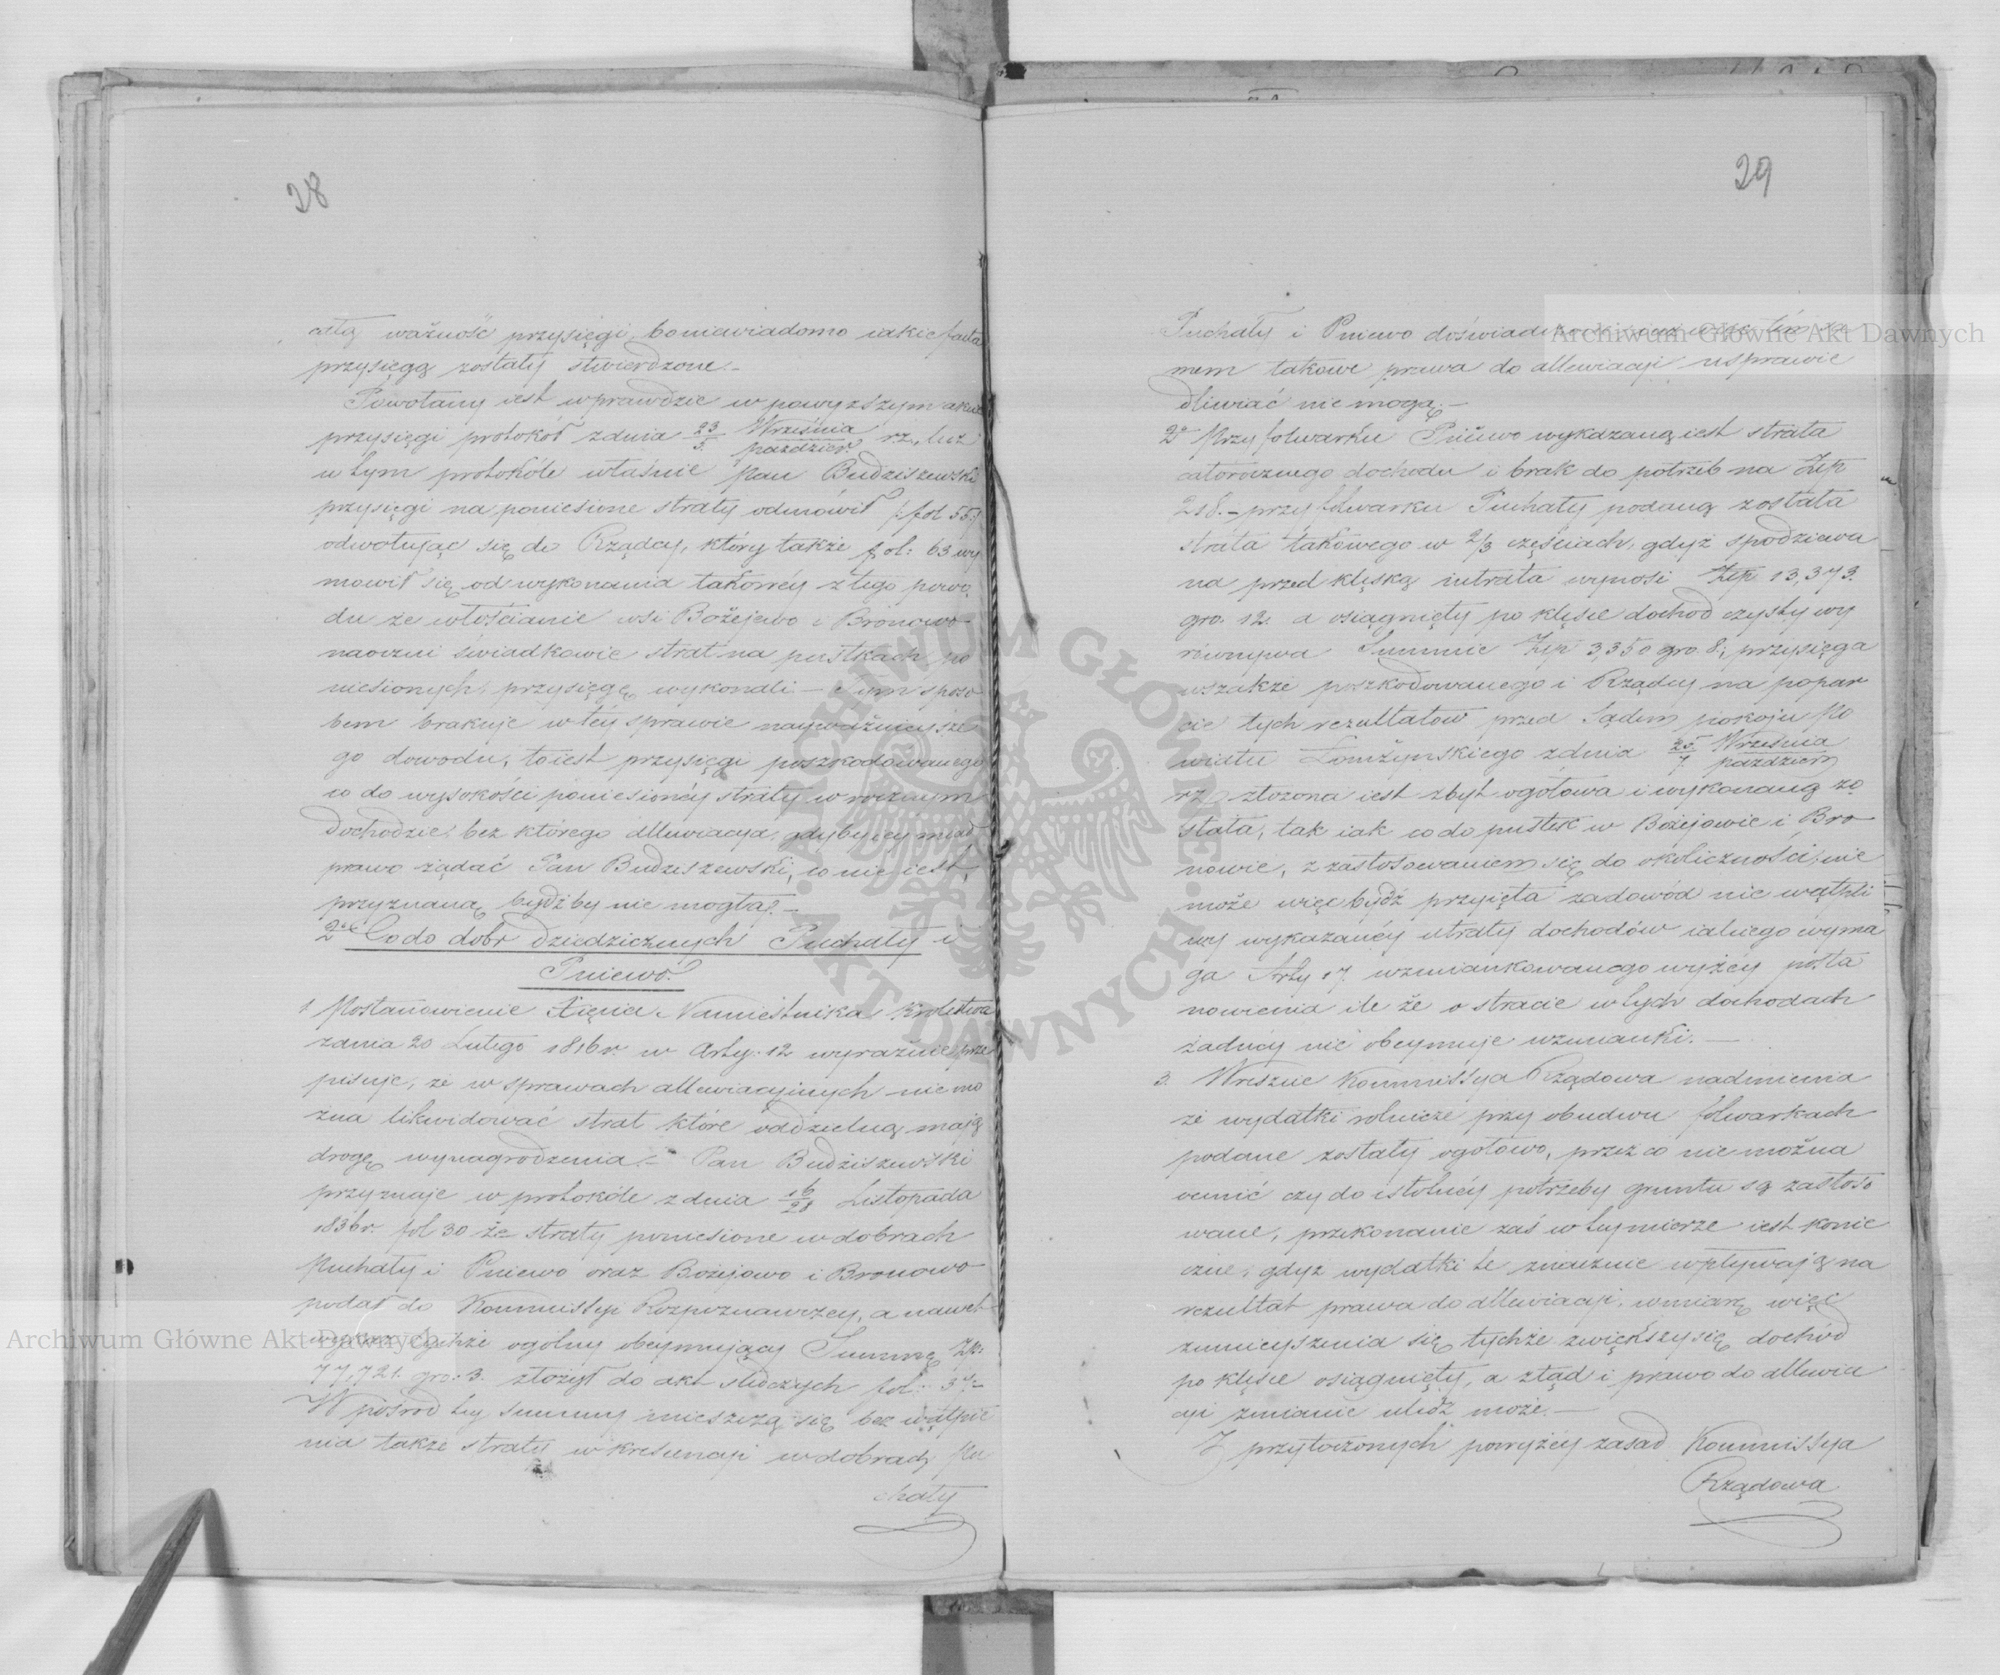 28
całą ważność przysięgi, bo niewiadomo iakie facta
przysięgą zostały stwierdzone.–
Powołany iest wprawdzie w powyzszym akcie
przysięgi protokół z dnia 23/5. Września/paździer. rz., lecz
w tym protokóle właśnie Pan Budziszewski
przysięgi na poniesione straty odmówił /:fol 55:/
odwołując się do Rządcy, który także fol: 63 wy
mowił się od wykonania takowéy z tego powo
du że włościanie wsi Bożejewo i Bronowo
naoczni świadkowie strat na pustkach po
niesionych, przysięgę wykonali – Tym sposo
bem brakuje w téy sprawie nayważnieysze
go dowodu, toiest przysięgi poszkodowanego
co do wysokości poniesionéy straty w rocznym
dochodzie, bez którego allewiacya, gdyby iéy miał
prawo żądać Pan Budziszewski, co nie iest,
przyznaną bydźby nie mogła.–
2e Co do dobr dziedzicznych Puchały i
Pniewo.
1 Postanowienie Xięcia Namiestnika Królestwa
z dnia 20 Lutego 1816 r. w Arty. 12 wyraźnie prze
pisuje, że w sprawach allewiacyinych nie mo
żna likwidować strat które oddzielną mają
drogę wynagrodzenia.– Pan Budziszewski
przyznaje w protokóle z dnia 16/28 Listopada
1836 r. fol 30 że straty poniesione w dobrach
Puchały i Pniewo oraz Bożejewo i Bronowo
podał do Kommissyi Rozpoznawczey, a nawet
wykaz tychże ogólny obeymujący Summę Zp:
77,721. gro: 3. złożył do akt śledczych fol: 3.–
W pośród tey Summy mieszczą się bez wątpie
nia także straty w krescencyi w dobrach Pu
chały
29
Puchały i Pniewo
mem takowe prawa do allewiacyi usprawie
dliwiać nie mogą.–
2e Przy folwarku Pniewo wykazaną iest strata
całorocznego dochodu i brak do potrzeb na Złp
218.– przy folwarku Puchały podaną została
strata takowego w 2/3 częściach, gdyż spodziewa
na przed klęską intrata wynosi Złp 13,373.
gro. 12. a osiągnięty po klęsce dochod czysty wy
równywa Summie Złp 3,350 gro. 8., przysięga
wszakże poszkodowanego i Rządcy na popar
cie tych rezultatów przed Sądem pokoju Po
wiatu Łomżyńskiego z dnia 25./7 Września/paździer
rz złożona iest zbyt ogółowa i wykonaną zo
stała, tak iak co do pustek w Bożejewie i Bro
nowie, z zastosowaniem się do okoliczności, nie
może więc bydź przyięta za dowód nie wątpli
wy wykazanéy utraty dochodów iakiego wyma
ga Arty 17 wzmiankowanego wyżéy posta
nowienia ile że o stracie w tych dochodach
żadnéy nie obeymuje wzmianki.–
3. Wreszcie Kommissya Rządowa nadmienia
że wydatki rolnicze przy obudwu folwarkach
podane zostały ogółowo, przez co nie można
ocenić czy do istotnéy potrzeby gruntu są zastoso
wane, przekonanie zaś w tey mierze iest konie
czne, gdyż wydatki te znacznie wpływają na
rezultat prawa do allewiacyi, w miarę więc
zmnieyszenia się tychże zwiększy się dochód
po klęsce osiągnięty, a ztąd i prawo do allewia
cyi zmianie uledz może.–
Z przytoczonych powyżéy zasad Kommissya
Rządowa
Archiwum Główne Akt Dawnych
Archiwum Główne Akt Dawnych
ARCHIWUM GŁÓWNE AKT DAWNYCH